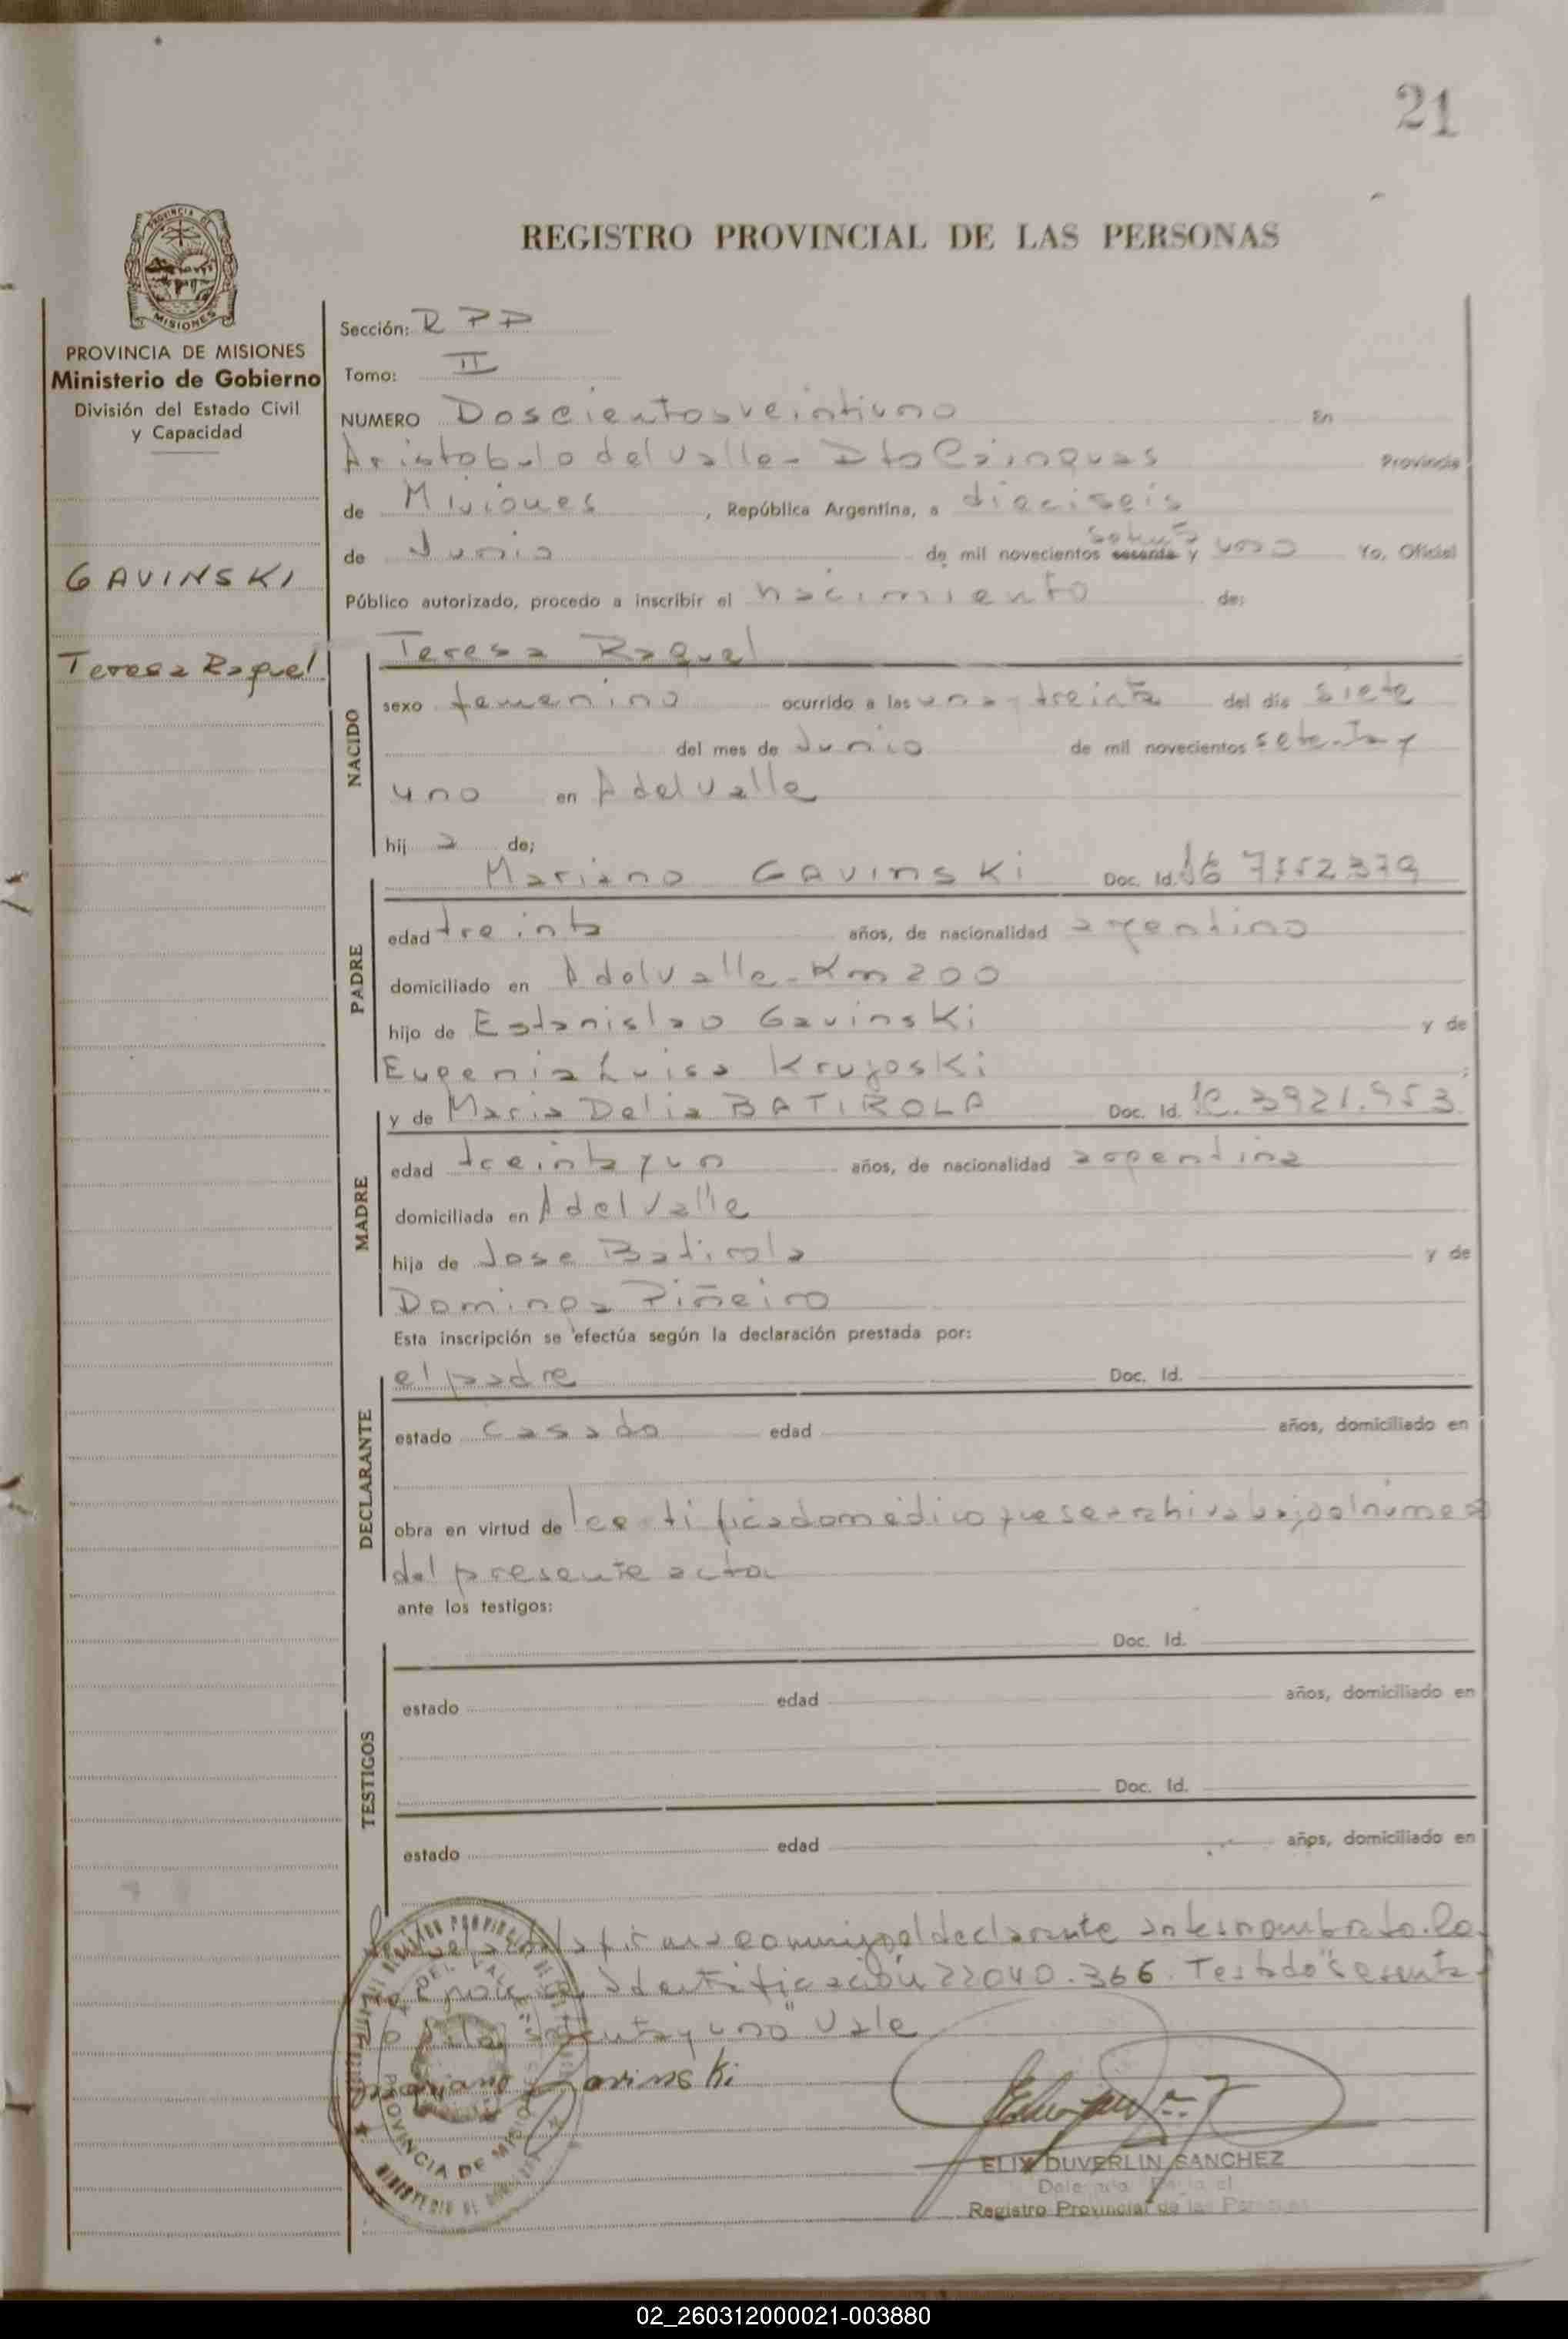 21
REGISTRO PROVINCIAL DE LAS PERSONAS
PROVINCIA DE MISIONES
Ministerio de Gobierno
División del Estado Civil
y Capacidad
GAVINSKI
Teresa Raquel
Sección: RPP
Tomo: II
NUMERO Doscientos veintiuno En
Aristobulo del Valle - Dto Cainguas Provincia
de Misiones, República Argentina, a dieciseis
setenta
de Junio de mil novecientos sesenta y uno Yo, Oficial
Público autorizado, procedo a inscribir el nacimiento de;
Teresa Raquel
NACIDO
sexo femenino ocurrido a las una y treinta del día siete
del mes de Junio de mil novecientos setenta y
uno en A del Valle
hij a de;
PADRE
Mariano GAVINSKI Doc. Id. 7552379
edad treinta años, de nacionalidad argentino
domiciliado en A del Valle - Km 200
hijo de Estanislao Gavinski y de
Eugenia Luisa
MADRE
y de Maria Delia BATIROLA Doc. Id. 3921.953
edad treinta y un años, de nacionalidad argentina
domiciliada en A del Valle
hija de Jose Batirola y de
Dominga Piñeiro
Esta inscripción se efectúa según la declaración prestada por:
DECLARANTE
el padre Doc. Id.
estado casado edad años, domiciliado en
obra en virtud de certificado médico que se archiva bajo el número
del presente acta
ante los testigos:
TESTIGOS
Doc. Id.
estado edad años, domiciliado en
Doc. Id.
estado edad años, domiciliado en
la firma conmigo el declarante antes nombrado.
Identificación 22040.366. Testado "sesenta
setenta y uno" Vale
Mariano Gavinski
PROVINCIA DE MISIONES
ELIX DUVERLIN SANCHEZ
Registro Provincial de las Personas
02_260312000021-003880